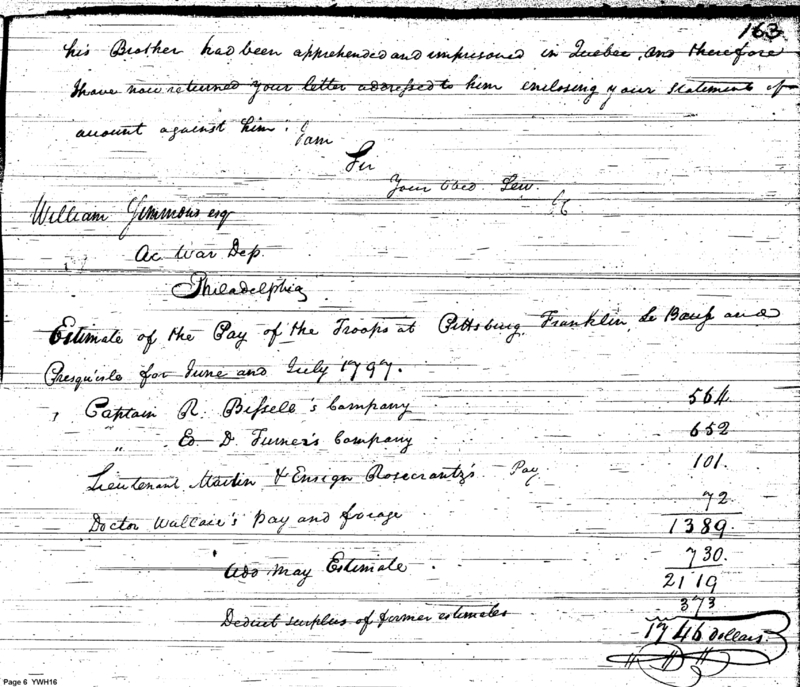 163
his Brother had been apprehended and imprisoned in Quebec, and therefore
I have now returned your letter addressed to him enclosing your statement of
account against him. I am
Sir
Your Obed. Serv.
William Simmons esq
Ac. War Dep.
Philadelphia
Estimate of the Pay of the Troops at Pittsburg, Franklin, Le Bœuf and
Presqu'isle for June and July 1797.
Captain R. Bissell's Company 564.
" Ed. D. Turner's Company 652
Lieutenant Martin & Ensign Rosecrantz's Pay 101.
Doctor Wallace's Pay and forage 72
1389.
Add May Estimate 730.
2119
Deduct surplus of former estimates 373
1746 dollars.
Page 6 YWH16